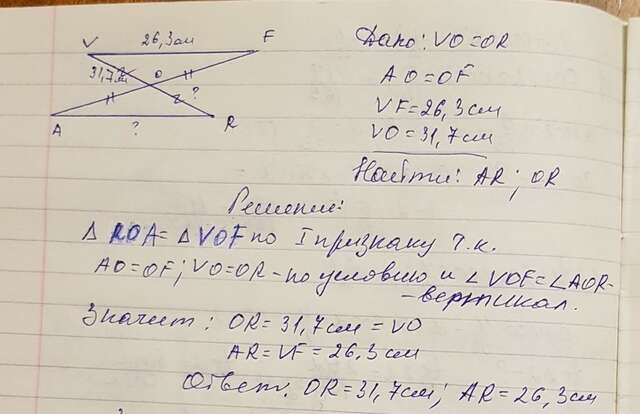 V 26,3см F
31,7см O ?
A ? R
Дано: VO=OR
AO=OF
VF=26,3см
VO=31,7см
Найти: AR; OR
Решение:
Δ ROA=ΔVOF по I признаку т.к.
AO=OF; VO=OR-по условию и ∠VOF=∠AOR-
-вертикал.
Значит: OR=31,7см=VO
AR=VF=26,3см
Ответ. OR=31,7см; AR=26,3см